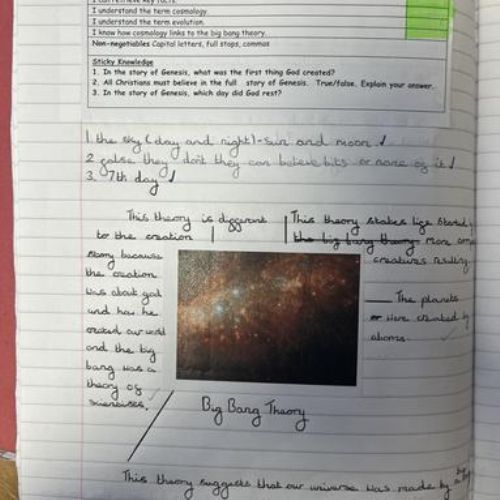 I can retrieve key facts.
I understand the term cosmology.
I understand the term evolution.
I know how cosmology links to the big bang theory.
Non-negotiables Capital letters, full stops, commas
Sticky Knowledge
1. In the story of Genesis, what was the first thing God created?
2. All Christians must believe in the full story of Genesis. True/false. Explain your answer.
3. In the story of Genesis, which day did God rest?
1. the sky (day and night) - sun and moon
2. false they don't they can believe bits or none of it
3. 7th day
This theory is different
to the creation
story because
the creation
was about god
and how he
created our world
and the big
bang was a
theory of
This theory states life started
the big bang theory more
creatures
The planets
were created by
atoms.
Big Bang Theory
This theory suggests that our universe was made by